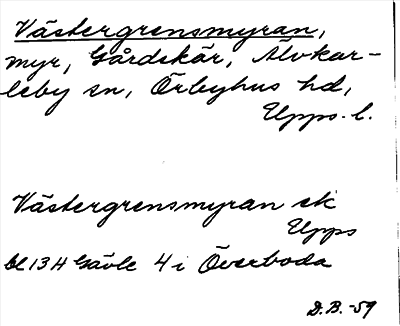 Västergrensmyran,
myr, Gårdskär, Älvkar-
leby sn, Örbyhus hd,
Upps. l.
Västergrensmyran ek
Upps
bl 13 H Gävle 4 i Överboda
D.B. -59